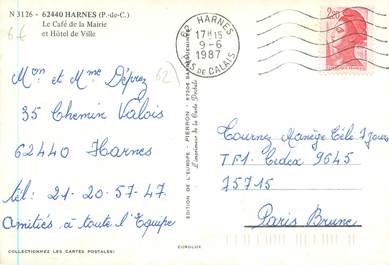 N 3126 - 62440 HARNES (P.-de-C.)
Le Café de la Mairie
et Hôtel de Ville
6€
62 HARNES
17H15
9-6
1987
PAS DE CALAIS
2,20
Mon et Mme Déprez
35 Chemin Valois
62440 Harnes
tél: 21-20.57-47.
Amitiés à toute l'Equipe
62
EDITION DE L'EUROPE - PIERRON - 57206 SARREGUEMINES
L'amoureux de la Carte Postale
Tournez Manège Télé 7 Jours
TF1. Cedex 9645
75715
Paris Brune
COLLECTIONNEZ LES CARTES POSTALES:
EUROLUX